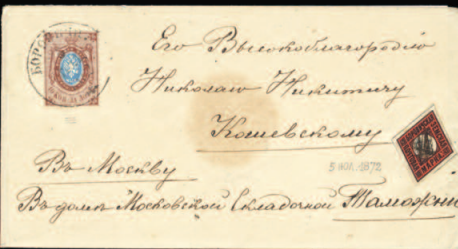 БОРО
Его Высокоблагородію
Николаю Никитичу
Кошевскому
5 НОЯ. 1872
Въ Москву
Въ домѣ Московской Складочной Таможни